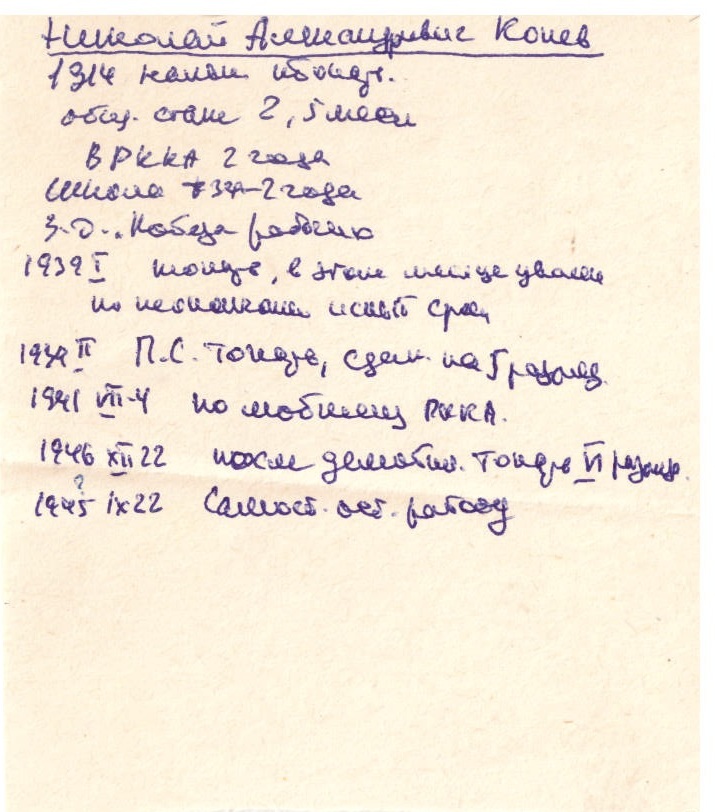 Николай Александрович Конев
1914
общ. стаж 2,5 меся
В РККА 2 года
школа ФЗУ-2 года
З-д. "Победа рабочих
1939 I токарь, в этом месяце уволен
по неокончании испыт срок
1939 II П.С. токарь, сдал на 5 разряд
1941 VIII-4 по мобилиз РККА.
1946 XII 22 после демобил. токарь VI разряд.
?
1945 IX 22 Самост. ост. работу